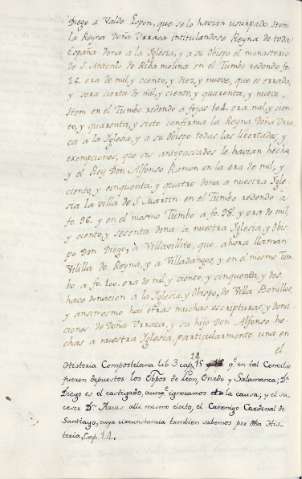 Diego a Valdo Espon, que se lo havian usurpado. Item
la Reyna Doña Urraca intitulandose Reyna de toda
España dona a la Iglesia, y a su obispo el monasterio
de S. Antonio de Alba molina en el Tumbo redondo fo.
12. era de mil y ciento, y diez, y nueve, que es errado,
y sera cierta de mil, y ciento, y quarenta, y nueve.
Item en el Tumbo redondo a fojas 102. era mil, y cien-
to, y quarenta, y siete confirma la Reyna Doña Urra-
ca a la Iglesia, y a su obispo todas las libertades, y
exempciones, que sus antepassados le havian hecho
y el Rey Don Alfonso Ramon en la era de mil, y
ciento, y cinquenta, y quatro dona a nuestra Igle-
sia la villa de S. Martin en el Tumbo redondo a
fo. 96. y en el mismo Tumbo a fo. 98. y era de mil
y ciento, y sesenta dona a la nuestra Iglesia, y Obis-
po Don Diego, de Villavellite, que ahora llaman
Velilla de Reyna, y a Villadangos, y en el mismo tum-
bo a fo. 100. era de mil, y ciento, y cinquenta, y dos
hace donacion a la Iglesia, y Obispo, de Villa Bonillos
y ansimesmo hai otras muchas escripturas, y dona-
ciones de Doña Urraca, y su hijo Don Alfonso he-
chas a nuestra Iglesia, particularmente una en
el
Historia Compostelana lib. 3 cap. 14 qe. en tal Concilio
fueron depuestos los Obpos de Leon, Oviedo y Salamanca; Dn
Diego es el castigado, aunqe ignoramos de la causa; y el su-
cesor Dn. Arias alli mismo electo, el Canonigo Cardenal de
Santiago, cuya circunstancia tambien sabemos por dha His-
toria, Cap. 14.